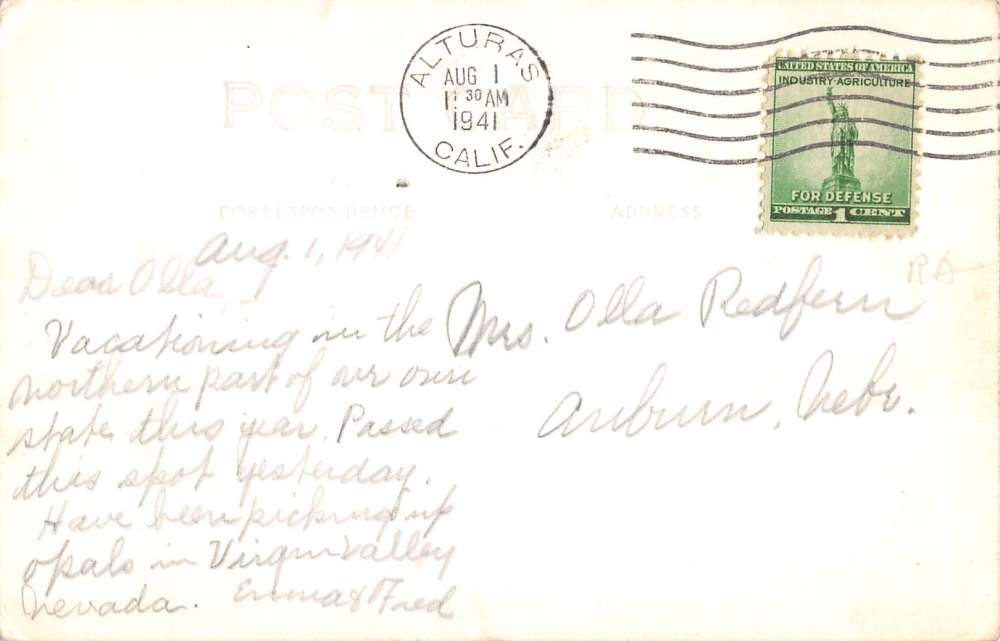 ALTURAS
AUG 1
11 30 AM
1941
CALIF.
UNITED STATES OF AMERICA
INDUSTRY·AGRICULTURE
FOR DEFENSE
POSTAGE 1 CENT
POST CARD
CORRESPONDENCE
ADDRESS
Aug. 1, 1941
Dear Olla,
Vacationing in the
northern part of our own
state this year. Passed
this spot yesterday.
Have been picking up
opals in Virgin Valley
Nevada. Emma & Fred
Mrs. Olla Redfern
Auburn, Nebr.